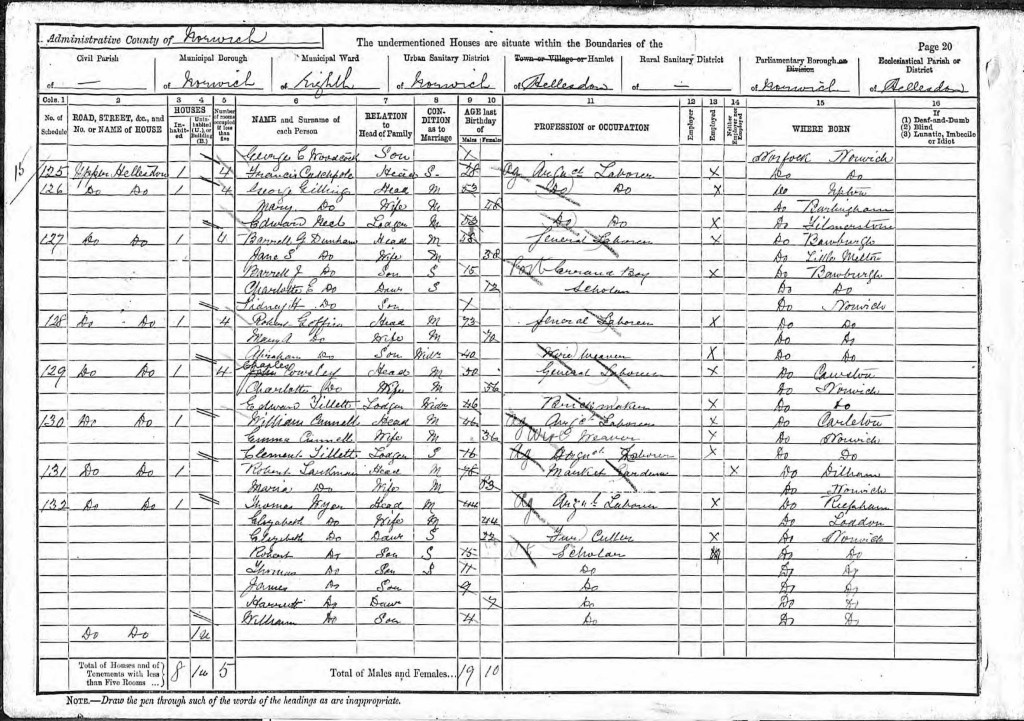 Administrative County of Norwich
The undermentioned Houses are situate within the Boundaries of the
Page 20
Civil Parish Municipal Borough Municipal Ward Urban Sanitary District Town or Village or Hamlet Rural Sanitary District Parliamentary Borough or Division Ecclesiastical Parish or District
of — of Norwich of Eighth of Norwich of Hellesdon of — of Norwich of Hellesdon
Cols. 1 2 3 4 5 6 7 8 9 10 11 12 13 14 15 16
No. of Schedule ROAD, STREET, &c., and No. or NAME of HOUSE HOUSES Inhabited Uninhabited (U.), or Building (B.) Number of rooms occupied if less than five NAME and Surname of each Person RELATION to Head of Family CONDITION as to Marriage AGE last Birthday of Males Females PROFESSION or OCCUPATION Employer Employed Neither Employer nor Employed WHERE BORN If (1) Deaf-and-Dumb (2) Blind (3) Lunatic, Imbecile or Idiot
George C Woodcock Son Norfolk Norwich
125 Upper Hellesdon 1 4 Francis Catchpole Head S 28 Ag Laborer X Do Do
126 Do Do 1 4 George Gilling Head M 53 Do Do X Do Upton
Mary Do Wife M 58 Do Burlingham
Edward Lodger M 53 Do Do X Do
127 Do Do 1 4 Barrell G Dunham Head M 38 General Laborer X Do Bawburgh
Jane S Do Wife M 38 Do Little Melton
Barrell J Do Son S 15 Errand Boy X Do Bawburgh
Charlotte E Do Daur S 12 Scholar Do Do
Sidney H Do Son Do Norwich
128 Do Do 1 4 Robert Goffin Head M 73 General Laborer X Do Do
Mary A Do Wife M 70 Do Do
Abraham Do Son Widr 40 Wire Weaver X Do Do
129 Do Do 1 4 Charles Powley Head M 50 General Laborer X Do Cawston
Charlotte Do Wife M 56 Do Norwich
Edward Tillett Lodger Widr 46 Brickmaker X Do Do
130 Do Do 1 William Cunnell Head M 46 Ag Laborer X Do Carleton
Emma Cunnell Wife M 36 Weaver X Do Norwich
Clement Tillett Lodger S 16 Ag Laborer X Do Do
131 Do Do 1 Robert Larkman Head M 78 Market Gardener X Do Dilham
Maria Do Wife M 73 Do Norwich
132 Do Do 1 Thomas Head M 44 Ag Laborer X Do Reepham
Elizabeth Do Wife M 44 Do Loddon
Elizabeth Do Daur S 22 Cutter X Do Norwich
Robert Do Son S 15 Scholar Do Do
Thomas Do Son S 11 Do Do Do
James Do Son 9 Do Do Do
Harriett Do Daur 7 Do Do Do
William Do Son 4 Do Do Do
Do Do 1u
Total of Houses and of Tenements with less than Five Rooms ... 8 1u 5 Total of Males and Females... 19 10
NOTE.—Draw the pen through such of the words of the headings as are inappropriate.